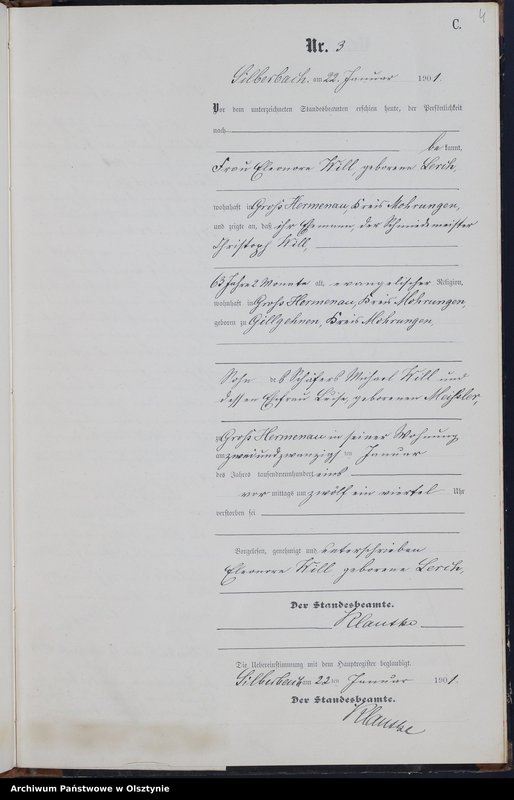 4
C.
Nr. 3
Silberbach am 22. Januar 1901.
Vor dem unterzeichneten Standesbeamten erschien heute, der Persönlichkeit
nach
be kannt,
Frau Eleonore Will, geborene
wohnhaft in Groß Hermenau, Kreis Mohrungen,
und zeigte an, daß ihr Ehemann, der Schmiedemeister
Christoph Will,
63 Jahre 2 Monate alt, evangelischer Religion,
wohnhaft in Groß Hermenau, Kreis Mohrungen,
geboren zu Gillgehnen, Kreis Mohrungen,
Sohn des Schäfers Michael Will und
dessen Ehefrau Luise, geborenen
zu Groß Hermenau in seiner Wohnung
am zweiundzwanzigsten Januar
des Jahres tausendneunhundert eins
vor mittags um zwölf ein viertel Uhr
verstorben sei
Vorgelesen, genehmigt und unterschrieben
Eleonore Will geborene
Der Standesbeamte.
Klautke
Die Uebereinstimmung mit dem Hauptregister beglaubigt.
Silberbach am 22 ten Januar 1901.
Der Standesbeamte.
Klautke
Archiwum Państwowe w Olsztynie